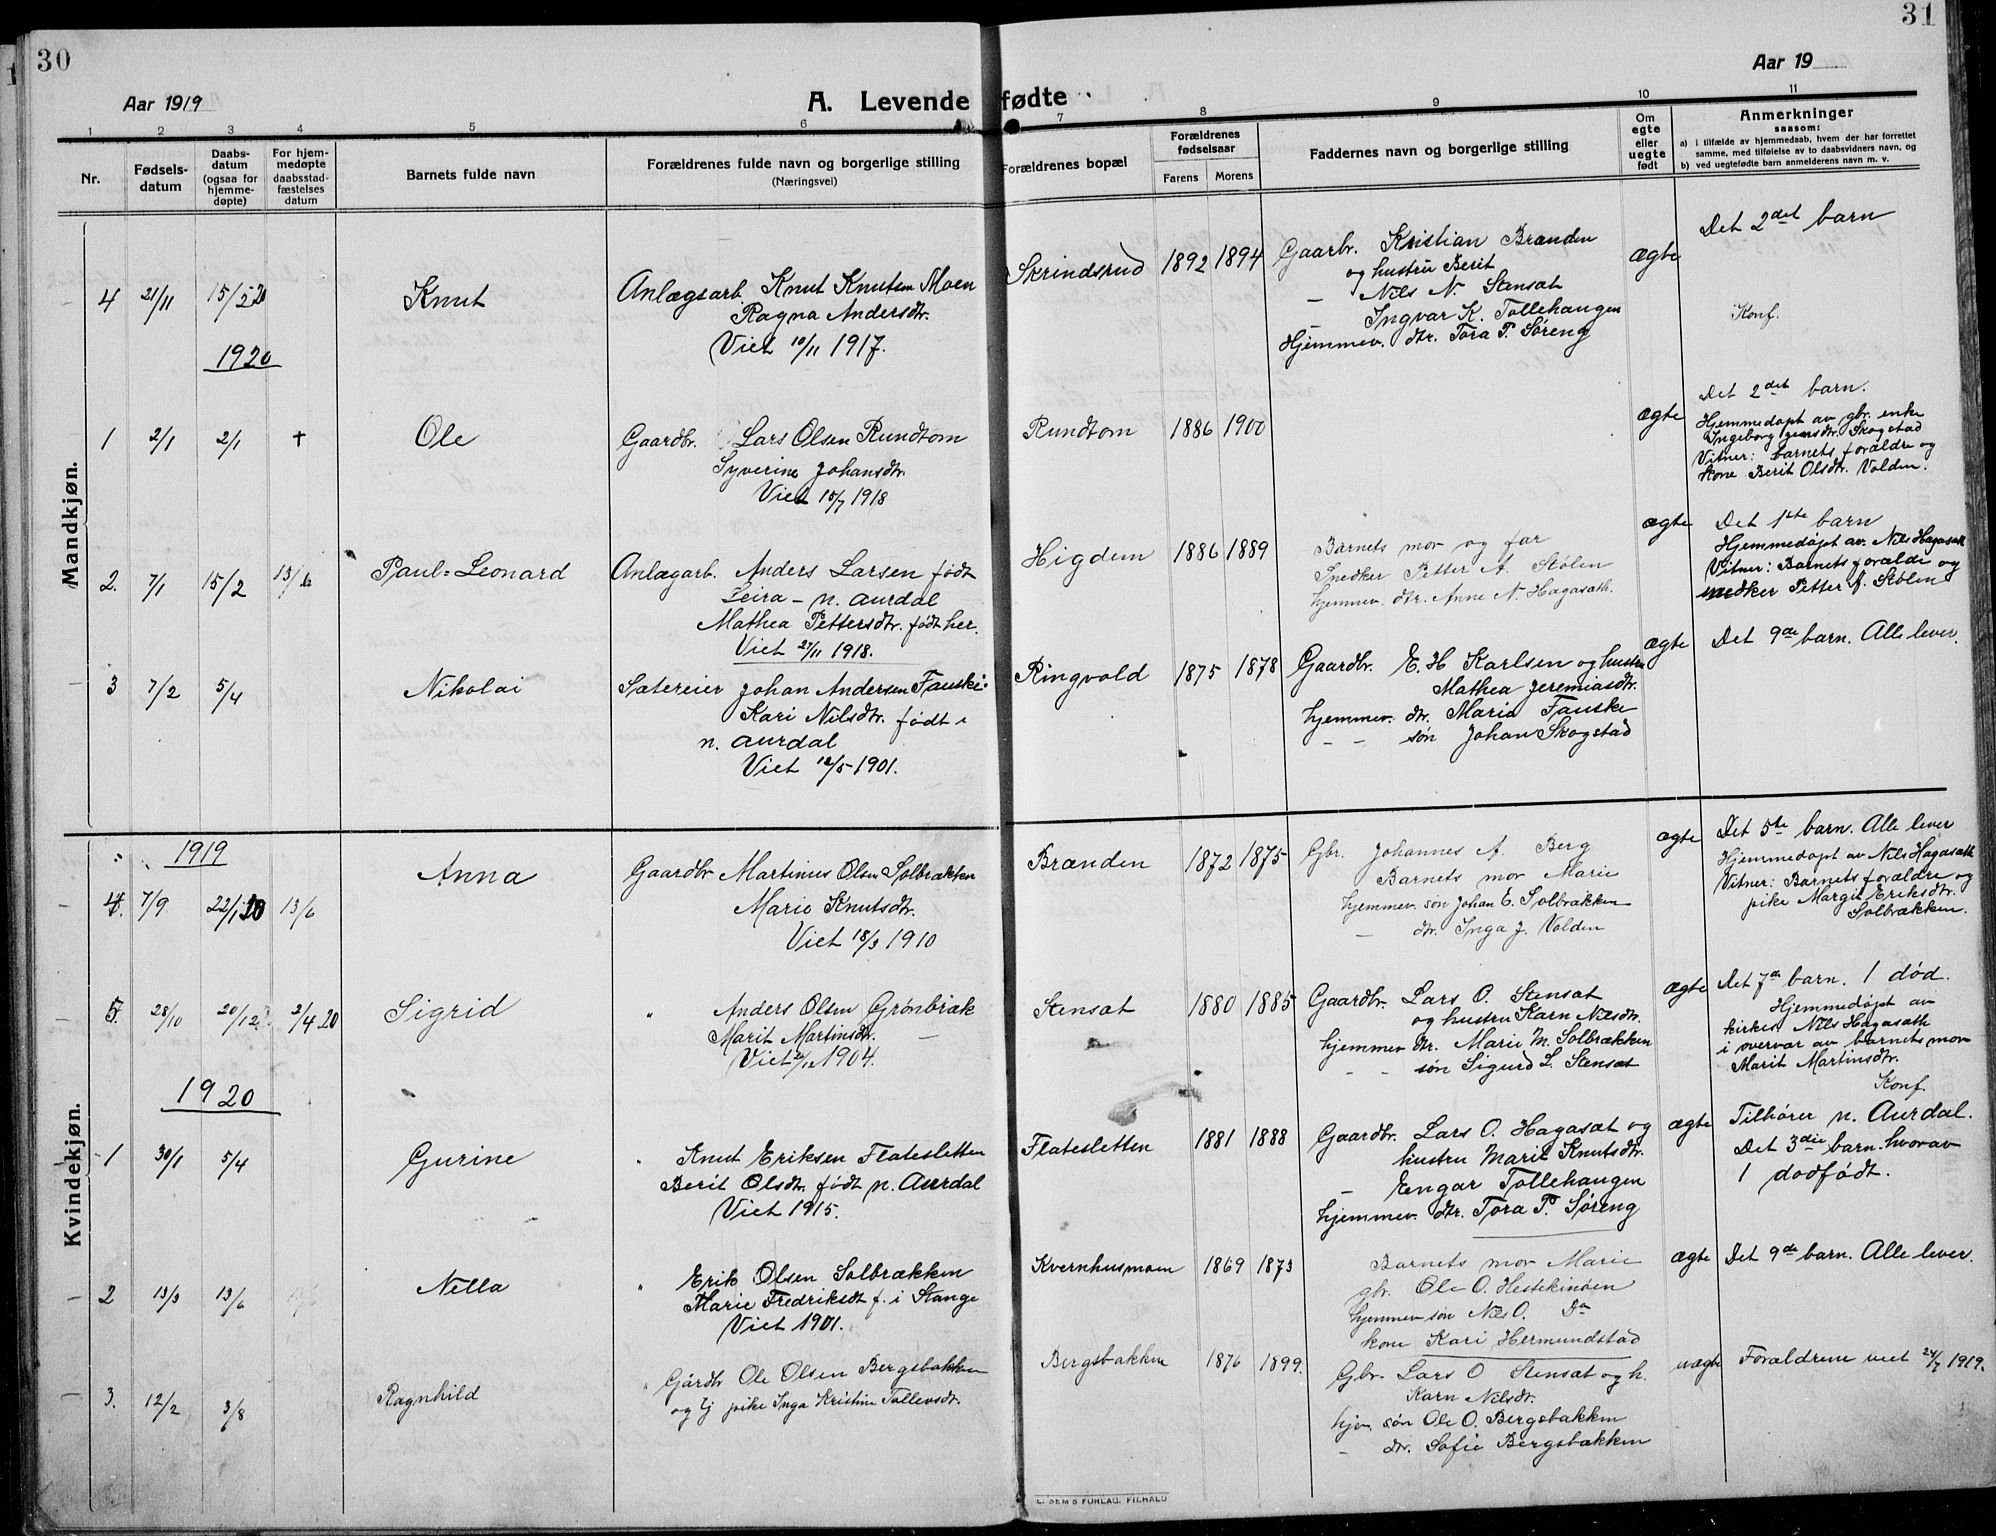 30
31
Aar 1919
A. Levende fødte
Aar 19
1 2 3 4 5 6 7 8 9 10 11
Nr.
Fødsels-
datum
Daabs-
datum
(ogsaa for
hjemme-
døpte)
For hjem-
medøpte
daabsstad-
fæstelses
datum
Barnets fulde navn
Forældrenes fulde navn og borgerlige stilling
(Næringsvei)
Forældrenes bopæl
Forældrenes
fødselsaar
Farens Morens
Faddernes navn og borgerlige stilling
Om
egte
eller
uegte
født
Anmerkninger
saasom:
a) i tilfælde av hjemmedaab, hvem der har forrettet
samme, med tilføielse av to daabsvidners navn, og
b) ved uegtefødte barn anmelderens navn m. v.
Mandkjøn.
4 21/11 15/2 20 Knut
Anlægsarb. Knut Knutsen Moen
Ragna Andersdtr.
Viet 10/11 1917.
Skrindsrud 1892 1894
Gaarbr. Kristian Brænden
og hustru Berit
– Nils N. Stensæt
– Ingvar K. Tollehaugen
Hjemmev. dtr. Tora P. Søreng
ægte
Det 2det barn
Konf.
1920
1 2/1 2/1 + Ole
Gaardbr. Lars Olsen Rundtom
Syverine Johansdtr.
Viet 15/7 1918
Rundtom 1886 1900
ægte
Det 2det barn.
Hjemmedøpt av gbr. enke
Ingeborg Jensdtr. Skogstad
Vitner: barnets forældre og
kone Berit Olsdtr. Volden.
2. 7/1 15/2 13/6 Paul=Leonard
Anlægarb. Anders Larsen født
Leira – n. Aurdal
Mathea Pettersdtr. født her.
Viet 27/11 1918.
Higdem 1886 1889
Barnets mor og far
Snedker Petter A. Stølen
hjemmev. dtr. Anne N. Hagasæth.
ægte
Det 1ste barn
Hjemmedøpt av Nils Hagasæth
Vitner: Barnets forældre og
snedker Petter A. Stølen
3 7/2 5/4 Nikolai
Sætereier Johan Andersen Fauske
Kari Nilsdtr. født i
n. Aurdal
Viet 12/5 1901.
Ringvold 1875 1878
Gaardbr. E. H Karlsen og hustru
Mathea Jeremiasdtr.
hjemmev. dtr. Maria Fauske
– – søn Johan Skogstad
ægte
Det 9de barn. Alle lever.
Kvindekjøn.
1919
4. 7/9 22/1 20 13/6 Anna
Gaardbr Martinus Olsen Solbrækken
Marie Knutsdtr.
Viet 18/3 1910
Brænden 1872 1875
Gbr. Johannes A. Berg
Barnets mor Marie
hjemmev. søn Johan E. Solbrækken
– dtr. Inga J. Volden
ægte
Det 5te barn. Alle lever
Hjemmedøpt av Nils Hagasæth
Vitner: Barnets forældre og
pike Margit Eriksdtr.
Solbrækken.
5. 28/10 20/12 2/4 20 Sigrid
" Anders Olsen Grønbræk
Marit Martinsdtr. –
Viet 1904.
Stensæt 1880 1885
Gaardbr. Lars O. Stensæt
og hustru Karn Nilsdtr.
hjemmev dtr. Marie M. Solbrækken
– – søn Sigurd L. Stensæt
ægte
Det 7de barn. 1 død.
Hjemmedøpt av
kirkes. Nils Hagasæth
i overvær av barnets mor
Marit Martinsdtr.
Konf.
1920
1 30/1 5/4 Gurine
" Knut Eriksen Flatesletten
Berit Olsdtr. født n. Aurdal
Viet 1915.
Flatesletten 1881 1888
Gaardbr. Lars O. Hagasæt og
hustru Marit Knutsdtr.
– Engar Tollehaugen
hjemmev. dtr. Tora P. Søreng
ægte
Tilhører n. Aurdal.
Det 3die barn. hvorav
1 dødfødt.
2 13/3 13/6 Nella
" Erik Olsen Solbrækken
Marie Fredriksdt f. i Stange
Viet 1901.
Kvernhusmoen 1869 1873
Barnets mor Marie
gbr. Ole O. Hestekinøen
hjemmev søn Nils O. Do
kone Kari Hermundstad
ægte
Det 9de barn. Alle lever.
3. 12/2 3/8 Ragnhild
" Gårdbr Ole Olsen Bergsbakken
og Ej pike Inga Kristine Tollevsdtr.
Bergsbakken 1876 1899.
Gbr. Lars O Stensæt og h.
Karn Nilsdtr.
hjev. søn Ole O. Bergsbakken
– dtr. Sofie Bergsbakken
uægte
Forældrene viet 24/7 1919.
E. SEM'S FORLAG. FR.HALD